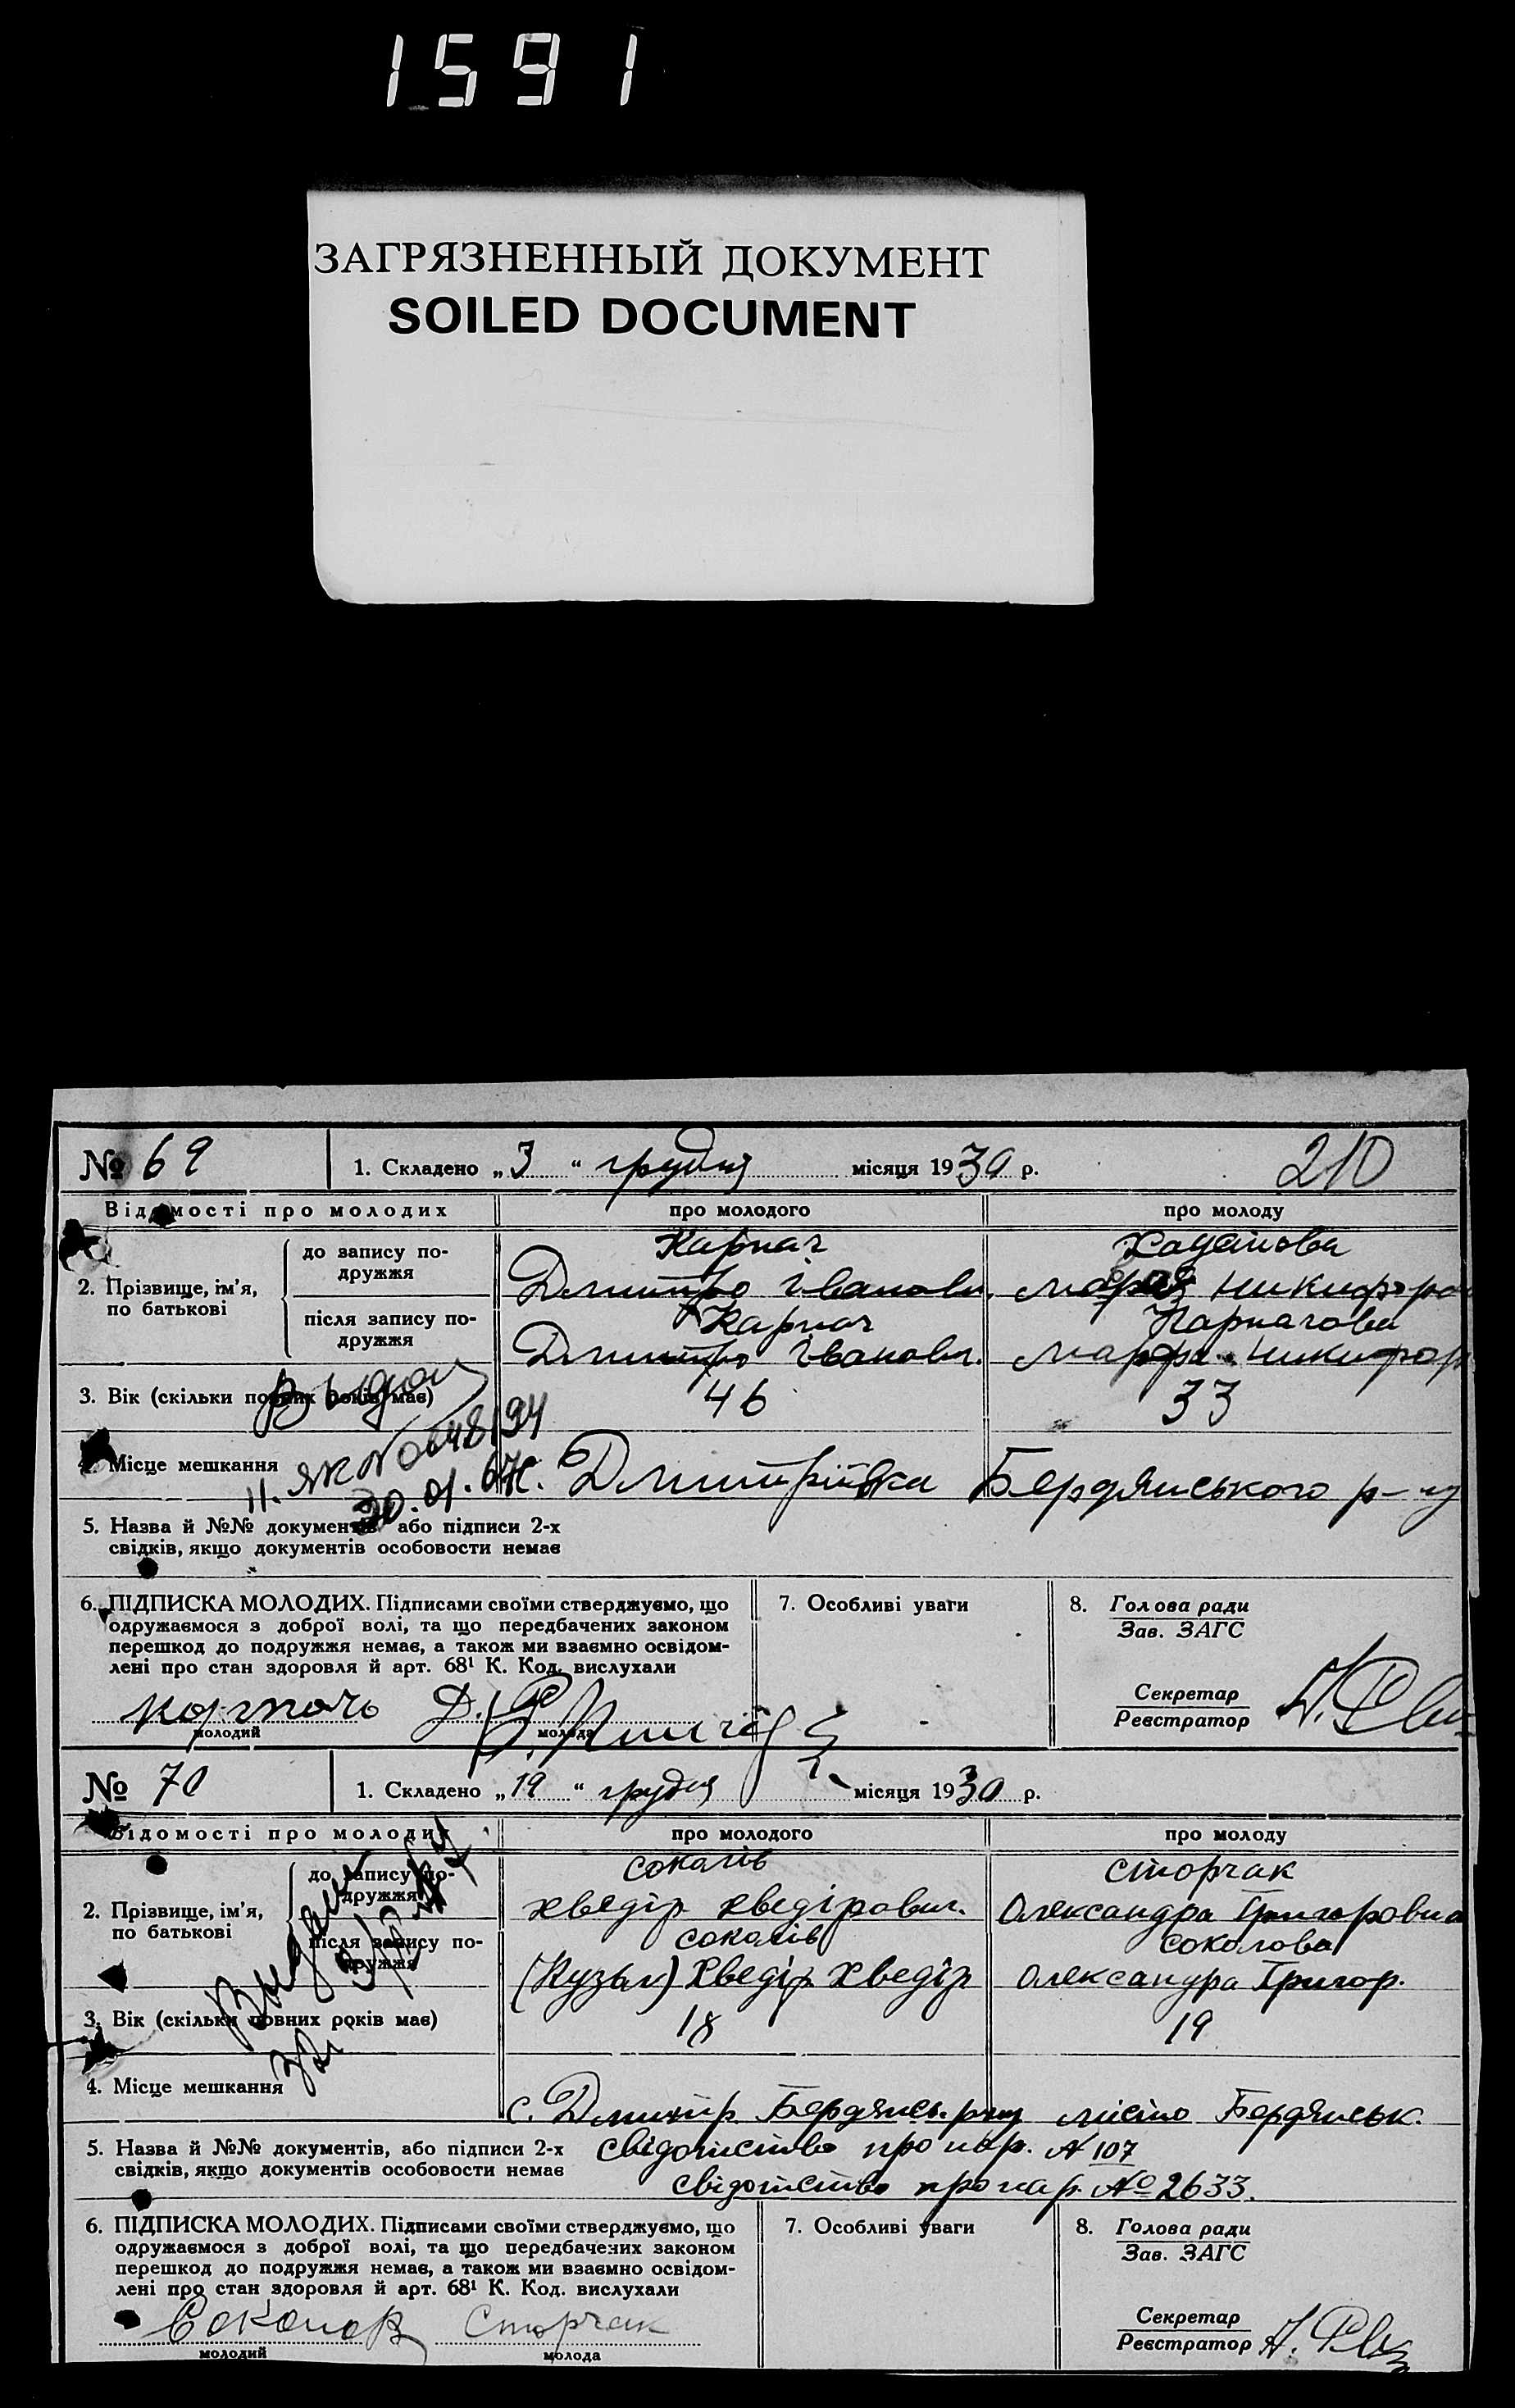 1591
ЗАГРЯЗНЕННЫЙ ДОКУМЕНТ
SOILED DOCUMENT
№ 69
1. Складено „ 3 “ грудня місяця 1930 р.
210
Відомості про молодих
про молодого
про молоду
2. Прізвище, ім’я,
по батькові
до запису по-
дружжя
Карнач
Дмитро Іванови.
Никифоро
після запису по-
дружжя
Карнач
Дмитро Іванови.
Карначова
Марфа Никифор
3. Вік (скільки повних років має)
46
33
4. Місце мешкання
с. Дмитрівка Бердянського р-ну
30.01.67
5. Назва й №№ документів або підписи 2-х
свідків, якщо документів особовости немає
6. ПІДПИСКА МОЛОДИХ. Підписами своїми стверджуємо, що
одружаємося з доброї волі, та що передбачених законом
перешкод до подружжя немає, а також ми взаємно освідом-
лені про стан здоровля й арт. 68¹ К. Код. вислухали
молодий
молода
7. Особливі уваги
8. Голова ради
Зав. ЗАГС
Секретар
Реєстратор
№ 70
1. Складено „ 19 “ грудня місяця 1930 р.
Відомості про молодих
про молодого
про молоду
2. Прізвище, ім’я,
по батькові
до запису по-
дружжя
соколів
Хведір Хведірович.
сторчак
Олександра Григоровна
після запису по-
дружжя
соколів
(Кузьм) Хведір Хведір
соколова
Олександра Григор.
3. Вік (скільки повних років має)
18
19
4. Місце мешкання
с. Дмитр Бердянсь. р-ну місто Бердянськ.
5. Назва й №№ документів, або підписи 2-х
свідків, якщо документів особовости немає
свідотство про нар. № 107
свідотство про нар. № 2633.
6. ПІДПИСКА МОЛОДИХ. Підписами своїми стверджуємо, що
одружаємося з доброї волі, та що передбачених законом
перешкод до подружжя немає, а також ми взаємно освідом-
лені про стан здоровля й арт. 68¹ К. Код. вислухали
Соколов Сторчак
молодий
молода
7. Особливі уваги
8. Голова ради
Зав. ЗАГС
Секретар
Реєстратор